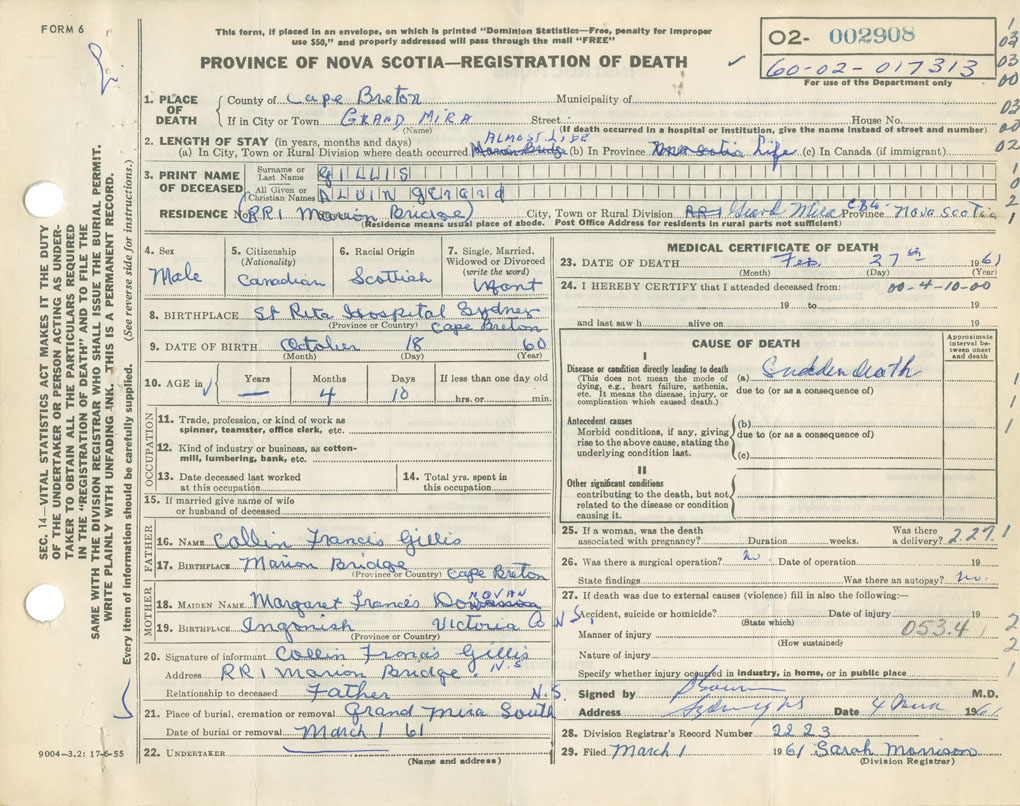 FORM 6
This form, if placed in an envelope, on which is printed "Dominion Statistics—Free, penalty for improper
use $50," and properly addressed will pass through the mail "FREE"
PROVINCE OF NOVA SCOTIA—REGISTRATION OF DEATH ✓
02- 002908
60-02-017313
For use of the Department only
1. PLACE OF DEATH
County of Cape Breton Municipality of
If in City or Town GRAND MIRA Street House No.
(Name) (If death occurred in a hospital or institution, give the name instead of street and number)
2. LENGTH OF STAY (in years, months and days) ALMOST LIFE
(a) In City, Town or Rural Division where death occurred Marion Bridge (b) In Province Nova Scotia Life (c) In Canada (if immigrant)
3. PRINT NAME OF DECEASED
Surname or Last Name GILLIS
All Given or Christian Names ALVIN GERARD
RESIDENCE No. (RR1 Marion Bridge) City, Town or Rural Division RR1 Grand Mira C.B.Co. Province Nova Scotia
(Residence means usual place of abode. Post Office Address for residents in rural parts not sufficient)
4. Sex Male
5. Citizenship (Nationality) Canadian
6. Racial Origin Scottish
7. Single, Married, Widowed or Divorced (write the word) Infant
8. BIRTHPLACE St Rita Hospital Sydney
(Province or Country) Cape Breton
9. DATE OF BIRTH October 18 60
(Month) (Day) (Year)
10. AGE in ✓ Years — Months 4 Days 10 If less than one day old hrs. or min.
OCCUPATION
11. Trade, profession, or kind of work as spinner, teamster, office clerk, etc.
12. Kind of industry or business, as cotton-mill, lumbering, bank, etc.
13. Date deceased last worked at this occupation
14. Total yrs. spent in this occupation
15. If married give name of wife or husband of deceased
FATHER
16. NAME Collin Francis Gillis
17. BIRTHPLACE Marion Bridge
(Province or Country) Cape Breton
MOTHER
18. MAIDEN NAME Margaret Francis Donovan
19. BIRTHPLACE Ingonish Victoria Co N.S.
(Province or Country)
20. Signature of informant Collin Francis Gillis
Address RR1 Marion Bridge, N.S
Relationship to deceased Father N.S.
21. Place of burial, cremation or removal Grand Mira South
Date of burial or removal March 1 61
22. UNDERTAKER
(Name and address)
9004—3.2: 17-6-55
MEDICAL CERTIFICATE OF DEATH
23. DATE OF DEATH Feb. 27th 1961
(Month) (Day) (Year)
24. I HEREBY CERTIFY that I attended deceased from: 00-4-10-00
19 to 19
and last saw h alive on 19
CAUSE OF DEATH
Approximate interval between onset and death
I
Disease or condition directly leading to death
(This does not mean the mode of dying, e.g., heart failure, asthenia, etc. It means the disease, injury, or complication which caused death.)
(a) Sudden death
due to (or as a consequence of)
Antecedent causes
Morbid conditions, if any, giving rise to the above cause, stating the underlying condition last.
(b)
due to (or as a consequence of)
(c)
II
Other significant conditions
contributing to the death, but not related to the disease or condition causing it.
25. If a woman, was the death associated with pregnancy? Duration weeks. Was there a delivery? 2271
26. Was there a surgical operation? no Date of operation 19
State findings Was there an autopsy? no.
27. If death was due to external causes (violence) fill in also the following:—
Accident, suicide or homicide? Date of injury 19
(State which)
Manner of injury 053.4
(How sustained)
Nature of injury
Specify whether injury occurred in industry, in home, or in public place
Signed by M.D.
Address Sydney NS Date 4 1961
28. Division Registrar's Record Number 2223
29. Filed March 1 1961 Sarah Morrison
(Division Registrar)
SEC. 14—VITAL STATISTICS ACT MAKES IT THE DUTY
OF THE UNDERTAKER OR PERSON ACTING AS UNDER-
TAKER TO OBTAIN ALL THE PARTICULARS REQUIRED
IN THE "REGISTRATION OF DEATH" AND TO FILE THE
SAME WITH THE DIVISION REGISTRAR WHO SHALL ISSUE THE BURIAL PERMIT.
WRITE PLAINLY WITH UNFADING INK. THIS IS A PERMANENT RECORD.
Every item of information should be carefully supplied. (See reverse side for instructions.)